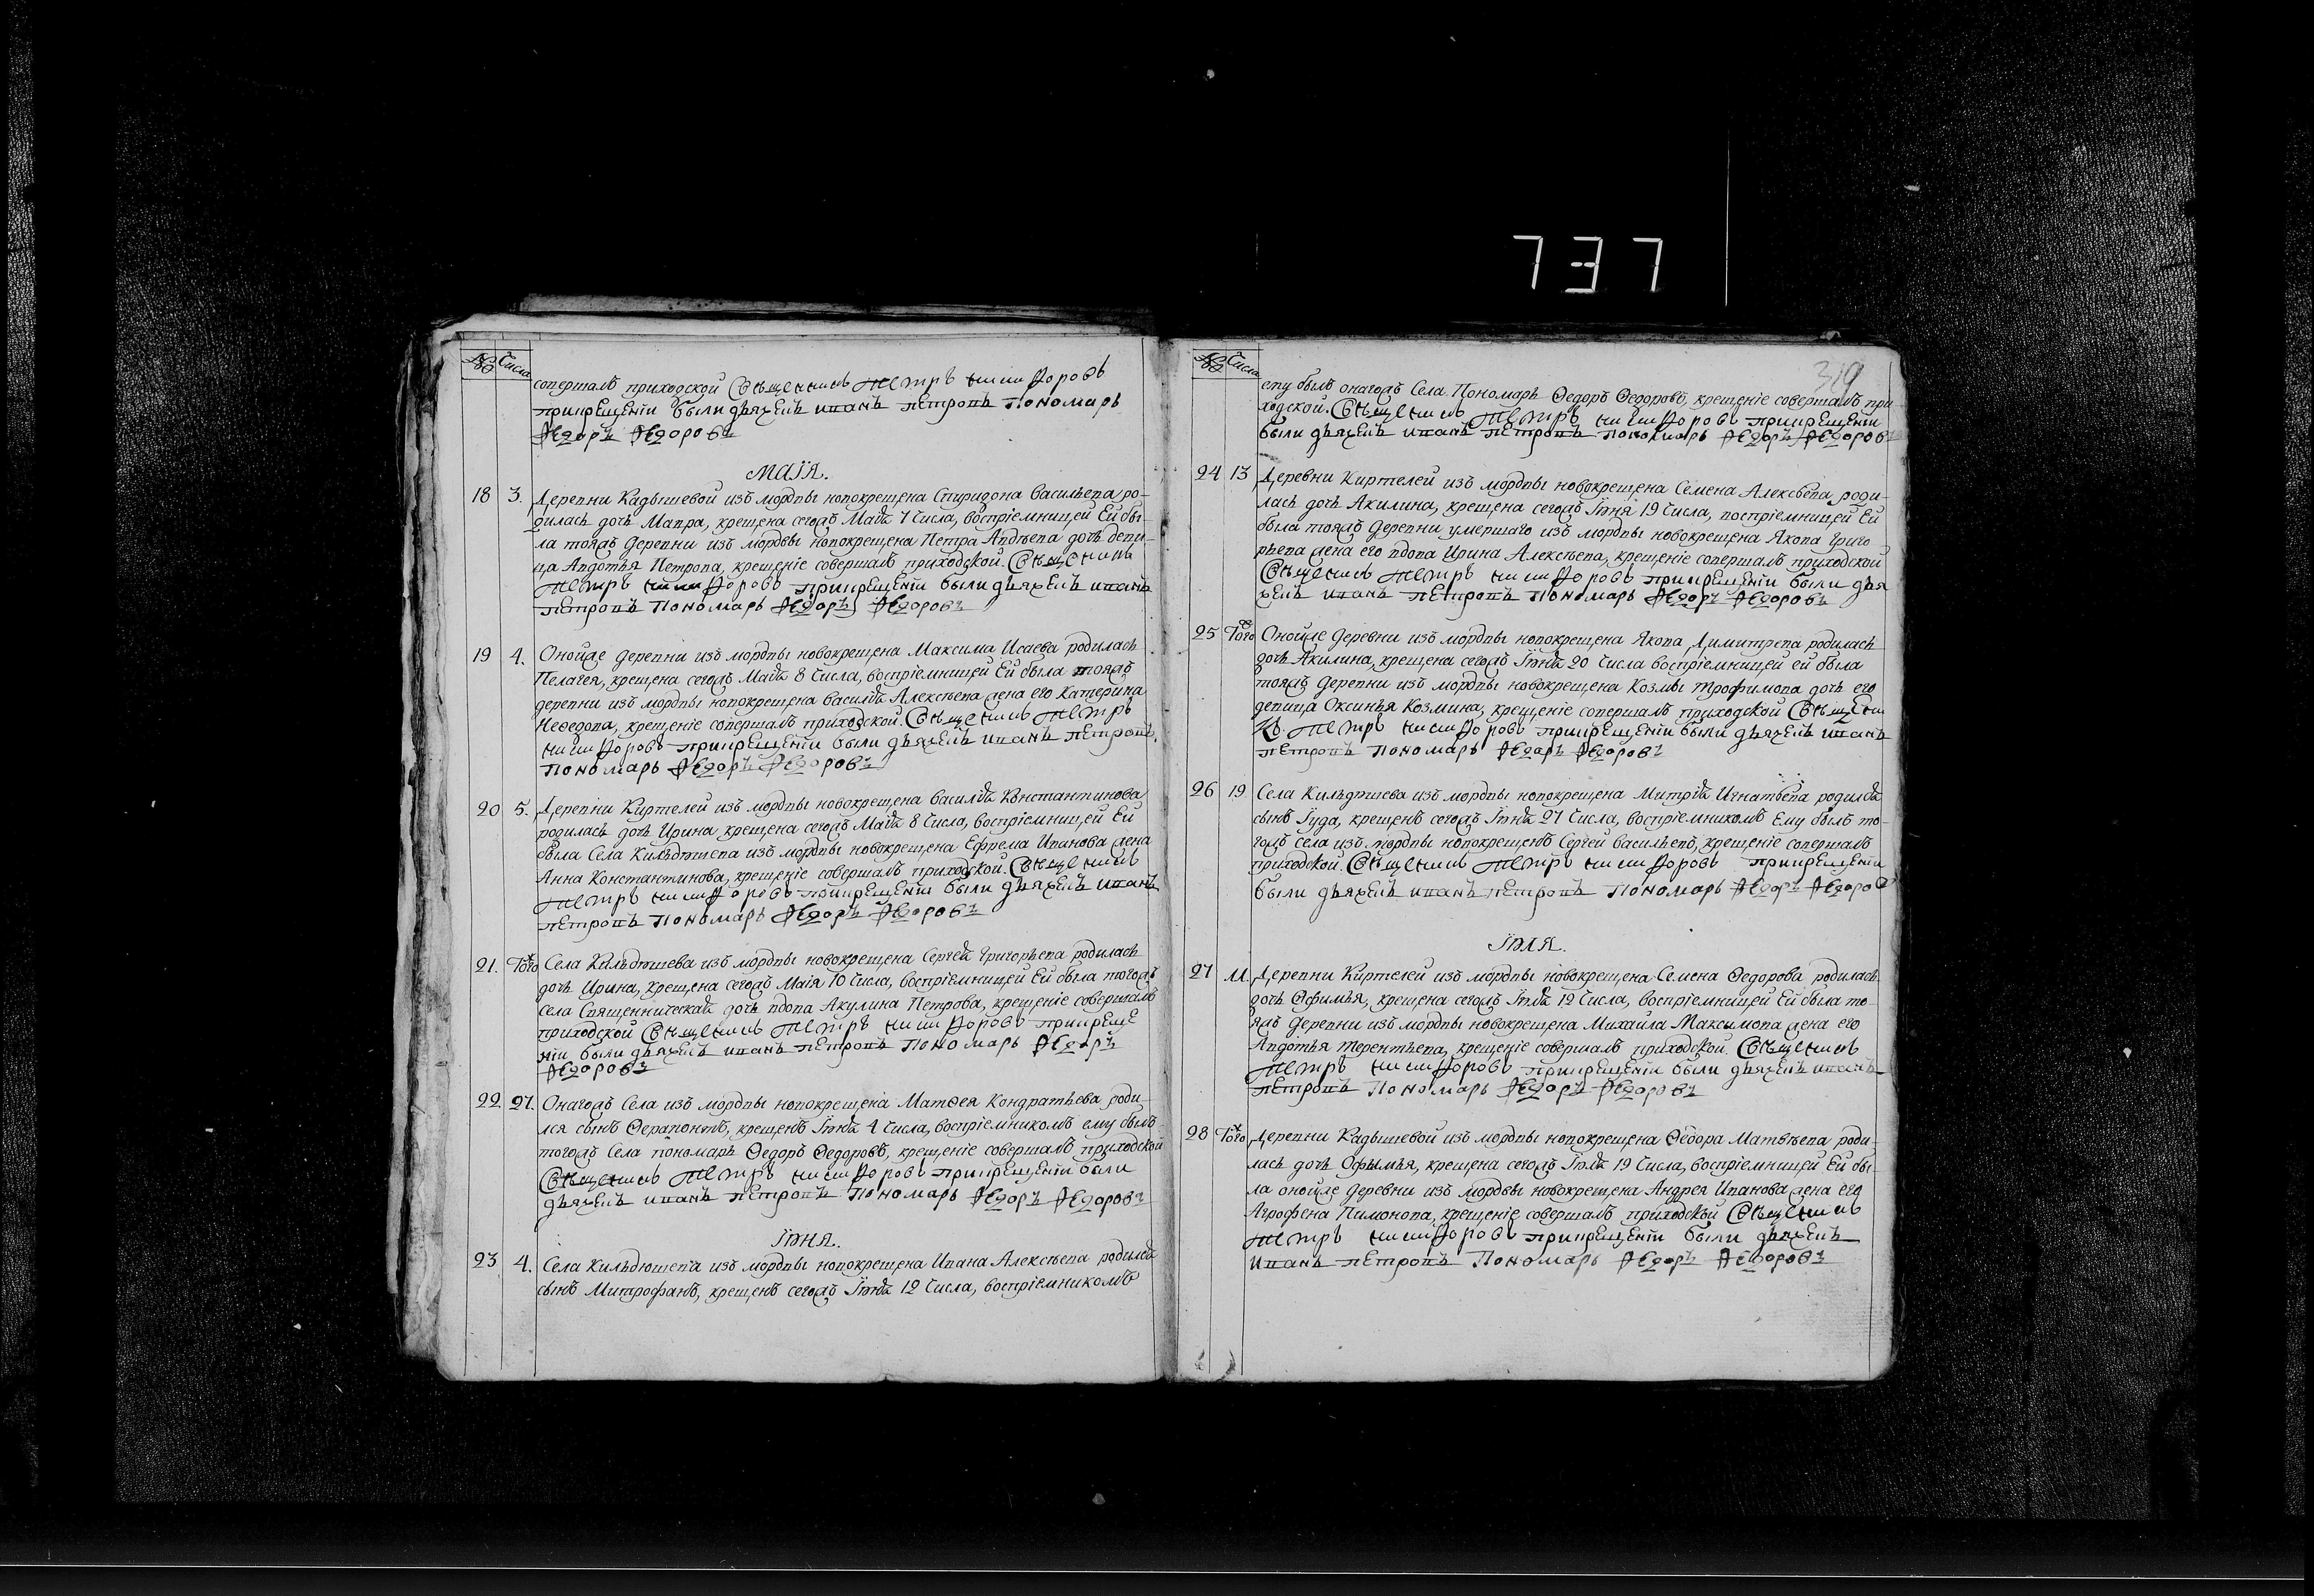 737
№ Числа
совершалъ приходской Священникъ Петръ Никифоровъ
прикрещеніи были дьячекъ иванъ петровъ пономарь
Федоръ Федоровъ
МАІЯ.
18 3. Деревни Кадышевой изъ мордвы новокрещена Спиридона Васильева ро-
дилась дочь Мавра, крещена сегожъ Маія 7 числа, воспріемницей Ей бы-
ла тояжъ деревни изъ мордвы новокрещена Петра Авдѣева дочь деви-
ца Авдотья Петрова, крещеніе совершалъ приходской. Священникъ
Петръ Никифоровъ прикрещеніи были дьячекъ иванъ
петровъ пономарь Федоръ Федоровъ
19 4. Онойже деревни изъ мордвы новокрещена Максима Исаева родилась
Пелагея, крещена сегожъ Маія 8 числа, воспріемницей Ей была тояжъ
деревни изъ мордвы новокрещена Василья Алексѣева жена его Катерина
Неѳедова, крещеніе совершалъ приходской. Священникъ Петръ
Никифоровъ прикрещеніи были дьячекъ иванъ петровъ
пономарь Федоръ Федоровъ
20 5. Деревни Киртелей изъ мордвы новокрещена Василья Константинова
родилась дочь Ирина, крещена сегожъ Маія 8 числа, воспріемницей Ей
была Села Кильдюшева изъ мордвы новокрещена Ефрема Иванова жена
Анна Константинова, крещеніе совершалъ приходской. Священникъ
Петръ Никифоровъ прикрещеніи были дьячекъ иванъ
петровъ пономарь Федоръ Федоровъ
21. Тогож Села Кильдюшева изъ мордвы новокрещена Сергея Григорьева родилась
дочь Ирина, крещена сегожъ Маія 10 числа, воспріемницей Ей была тогожъ
села Священническая дочь вдова Акулина Петрова, крещеніе совершалъ
приходской Священникъ Петръ Никифоровъ прикреще
ніи были дьячекъ иванъ петровъ пономарь Федоръ
Федоровъ
22 27. Оногожъ Села изъ мордвы новокрещена Матѳея Кондратьева роди-
лся сынъ Ѳерапонтъ, крещенъ Іюня 4 числа, воспріемникомъ ему былъ
тогожъ Села пономарь Ѳедоръ Ѳедоровъ, крещеніе совершалъ приходской
Священникъ Петръ Никифоровъ прикрещеніи были
дьячекъ иванъ петровъ пономарь Федоръ Федоровъ
ІЮНЯ.
23 4. Села Кильдюшева изъ мордвы новокрещена Ивана Алексѣева родился
сынъ Митрофанъ, крещенъ сегожъ Іюня 12 числа, воспріемникомъ
№ Числа
319
ему былъ оногожъ Села Пономарь Ѳедоръ Ѳедоровъ, крещеніе совершалъ при-
ходской. Священникъ Петръ Никифоровъ прикрещеніи
были дьячекъ иванъ петровъ пономарь Федоръ Федоровъ
24 13 Деревни Киртелей изъ мордвы новокрещена Семена Алексѣева роди-
лась дочь Акилина, крещена сегожъ Іюня 19 числа, воспріемницей Ей
была тояжъ деревни умершаго изъ мордвы новокрещена Якова Григо-
рьева жена его вдова Ирина Алексѣева, крещеніе совершалъ приходской
Священникъ Петръ Никифоровъ прикрещеніи были дья
чекъ иванъ петровъ пономарь Федоръ Федоровъ
25 Тогож Онойже деревни изъ мордвы новокрещена Якова Димитрева родилась
дочь Акилина, крещена сегожъ Іюня 20 числа воспріемницей ей была
тояжъ деревни изъ мордвы новокрещена Козмы Трофимова дочь его
девица Оксинья Козмина, крещеніе совершалъ приходской Священни
къ. Петръ Никифоровъ прикрещеніи были дьячекъ иванъ
петровъ пономарь Федоръ Федоровъ
26 19 Села Кильдюшева изъ мордвы новокрещена Митрія Игнатьева родился
сынъ Іуда, крещенъ сегожъ Іюня 27 числа, воспріемникомъ Ему былъ то-
гожъ села изъ мордвы новокрещенъ Сергей Васильевъ, крещеніе совершалъ
приходской. Священникъ Петръ Никифоровъ прикрещеніи
были дьячекъ иванъ петровъ пономарь Федоръ Федоро
ІЮЛЯ.
27 11. Деревни Киртелей изъ мордвы новокрещена Семена Ѳедорова родилась
дочь Офимья, крещена сегожъ Іюля 12 числа, воспріемницей Ей была то-
яжъ деревни изъ мордвы новокрещена Михайла Максимова жена его
Авдотья Терентьева, крещеніе совершалъ приходской. Священникъ
Петръ Никифоровъ прикрещеніи были дьячекъ иванъ
петровъ пономарь Федоръ Федоровъ
28 Тогож Деревни Кадышевой изъ мордвы новокрещена Ѳедора Матвѣева роди-
лась дочь Офимья, крещена сегожъ Іюля 19 числа, воспріемницей Ей бы-
ла онойже деревни изъ мордвы новокрещена Андрея Иванова жена его
Агрофена Пимонова, крещеніе совершалъ приходской Священникъ
Петръ Никифоровъ прикрещеніи были дьячекъ
иванъ петровъ пономарь Федоръ Федоровъ